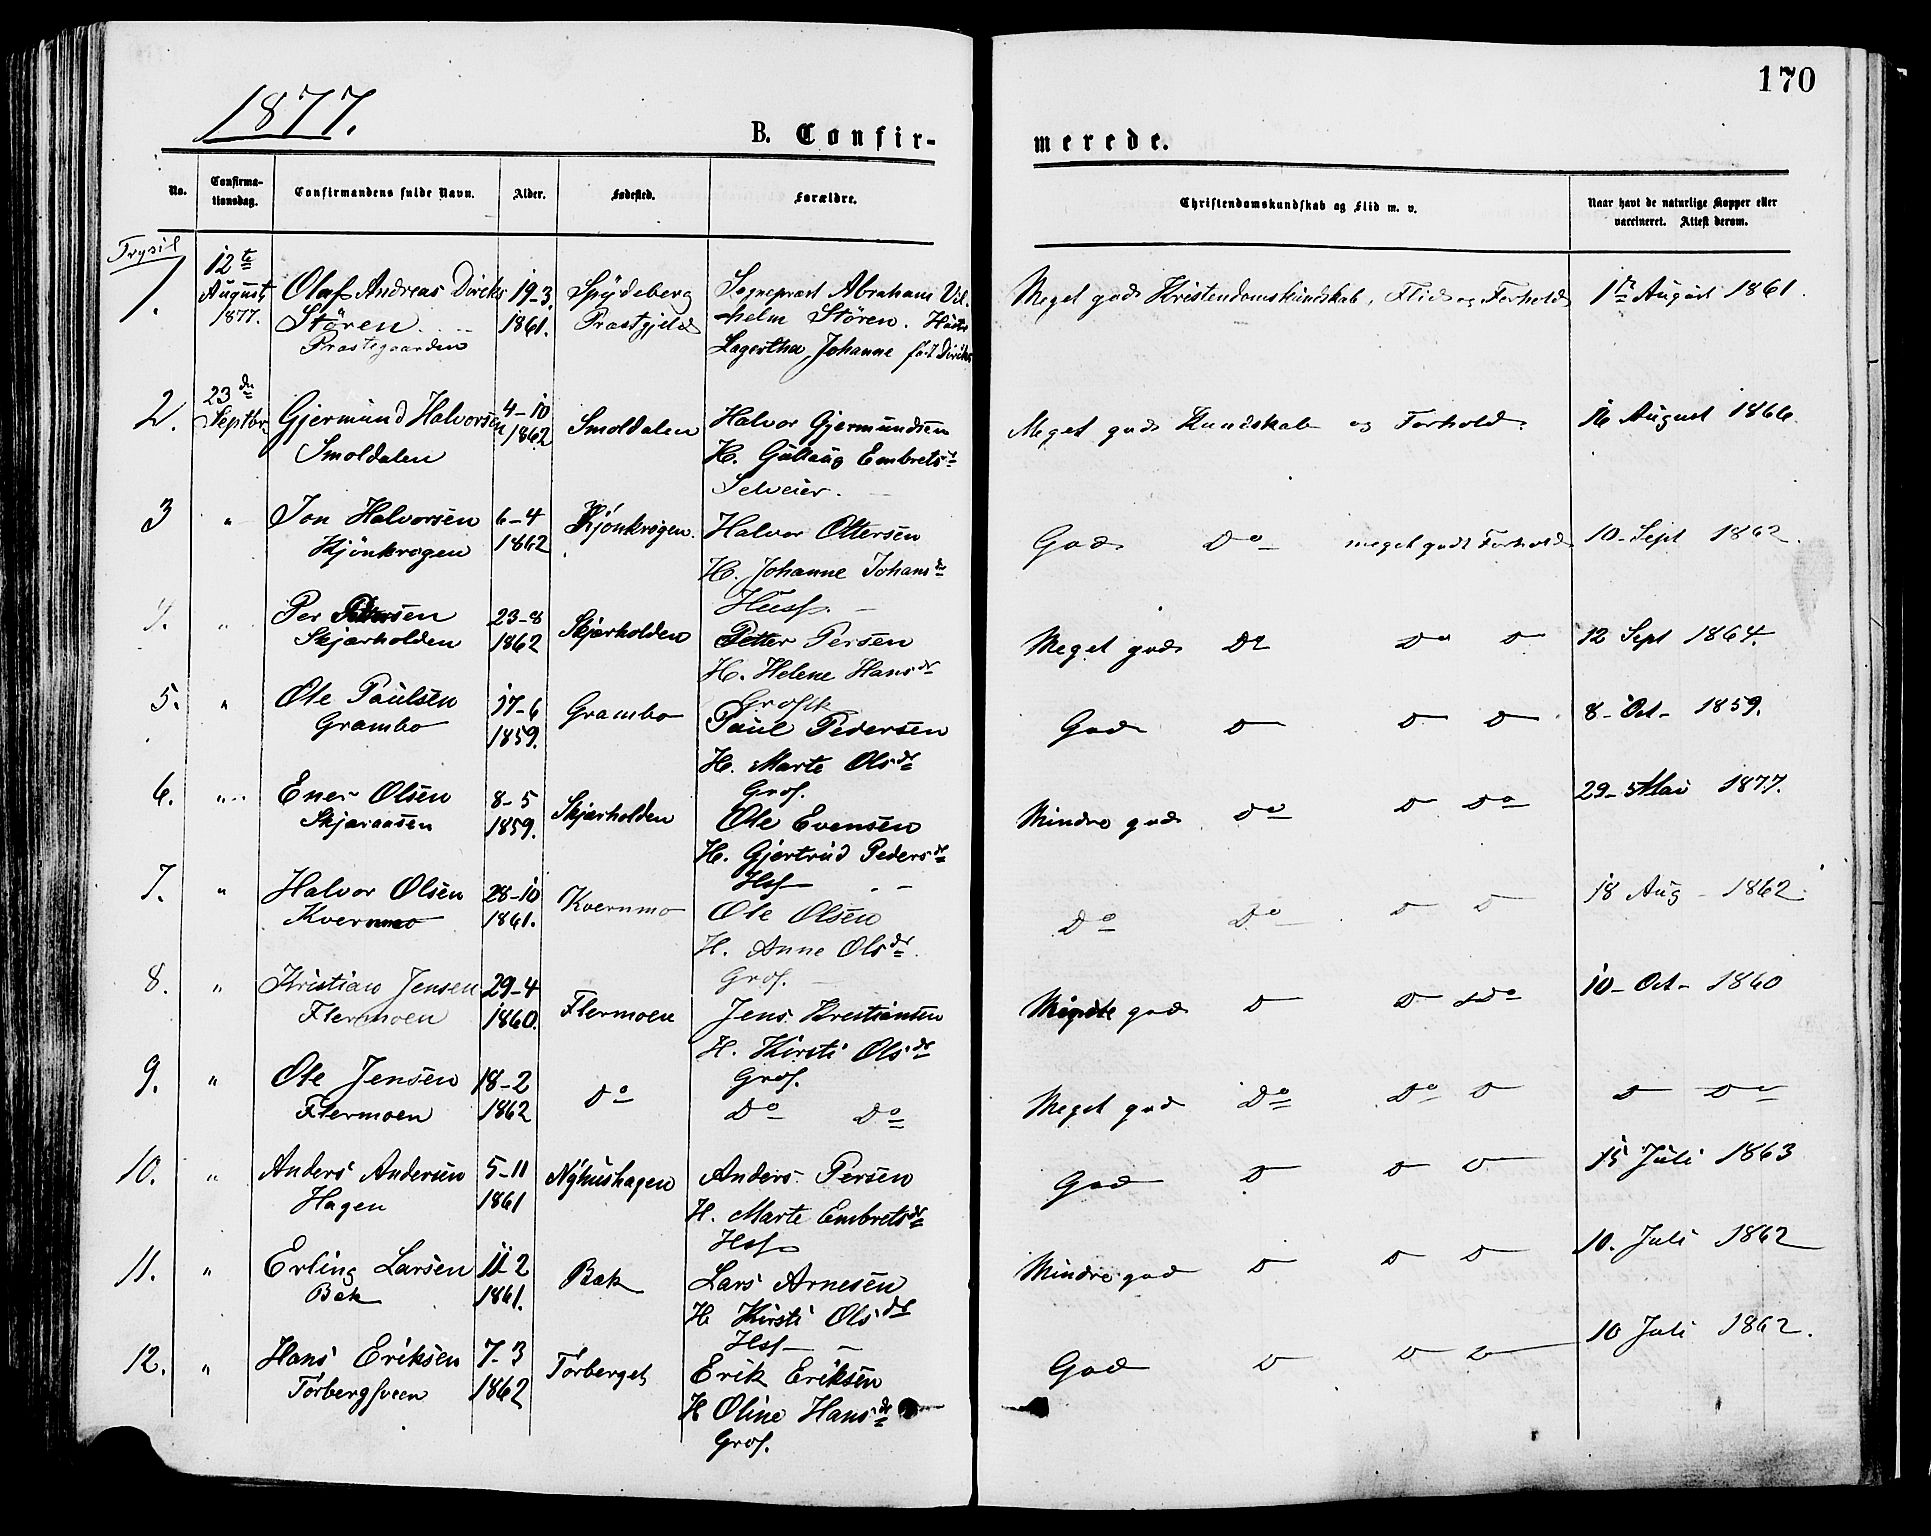 170
1877.
B. Confir-
merede.
No.
Confirma-
tionsdag.
Confirmandens fulde Navn.
Alder.
Fødested.
Forældre.
Christendomskundskab og Flid m. v.
Naar havt de naturlige Kopper eller
vaccineret. Attest derom.
Trysil
1. 12te August 1877. Olaf Andreas Diricks 19-3 Spydeberg Sognepræst Abrahan Vil- Meget gods Kristendomskundskab, Flid og Forhold 1ste August 1861.
Stören 1861. Præstgjeld helm Stören. Hustru
Præstegaarden Lagertha Johanne föd Diriks
2. 23de Septbr. Gjermund Halvorsen 4-10 Smoldalen Halvor Gjermundsen Meget gods Kundskab og Forhold. 16 August 1866.
Smoldalen 1862 H. Gullaug Embretsdr
Selveier.
3 " Jon Halvorsen 6-4 Kjönkrogen. Halvor Ottersen Gods Do meget godt Forhold 10-Sept 1862.
Kjönkrogen 1862 H. Johanne Johansdr
Husf.
4. " Per Pettersen 23-8 Skjærholden Petter Persen Meget gods Do Do D 12 Sept 1864.
Skjærholden 1862 H. Helene Hansdr
5. " Ole Paulsen 17-6 Grambo Paul Pedersen Gods D D D 8-Oct- 1859.
Grambo 1859. H. Marte Olsdr
Grof.
6. " Ener Olsen 8-5 Skjærholden Ole Evensen Mindre gods Do D Do 29-Mai 1877.
Skjæraasen 1859. H. Gjertrud Pedersdr
Hsf
7. " Halvor Olsen 28-10 Kvernmo Ole Olsen Do Do D D 18 Aug- 1862.
Kvernmo 1861. H. Anne Olsdr
Grof.
8. " Kristian Jensen 29-4 Flermoen Jens Kristiansen gods D D Do 10-Oct- 1860
Flermoen 1860. H. Kirsti Olsdr
Grof.
9. " Ole Jensen 18-2 Do Do Do Meget god Do Do D D Do
Flermoen 1862
10. " Anders Andersen 5-11 Nyhushagen Anders Persen God D D D 15 Juli 1863
Hagen 1861 H. Marte Embretsdr
Hsf
11. " Erling Larsen 11-2 Bæk Lars Arnesen Mindre god D D D 10. Juli 1862
Bæk 1861. H Kirsti Olsdr
Hsf
12. " Hans Eriksen 7-3 Törberget Erik Eriksen God D D D 10 Juli 1862.
Törbergsveen 1862 H Oline Hansdr
Grof.